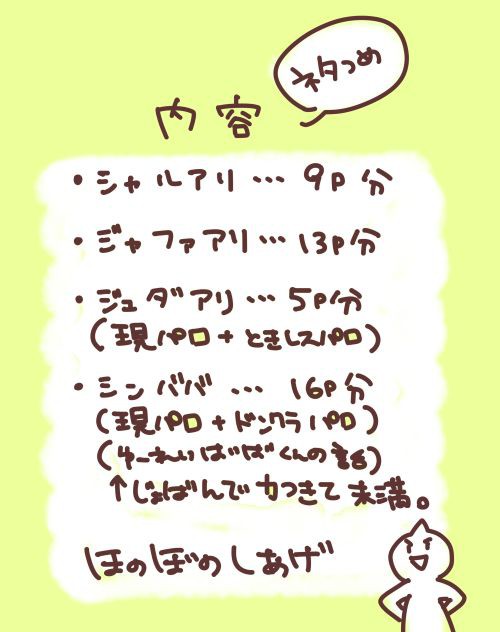 ネタつめ
内容
・シャルアリ… 9P分
・ジャファアリ… 13P分
・ジュダアリ… 5P分
(現パロ+ときレスパロ)
・シンババ … 16P分
(現パロ+ドンクラパロ)
(ゆーれいばばくんの話)
↑じょばんで力つきて未満。
ほのぼのしあげ